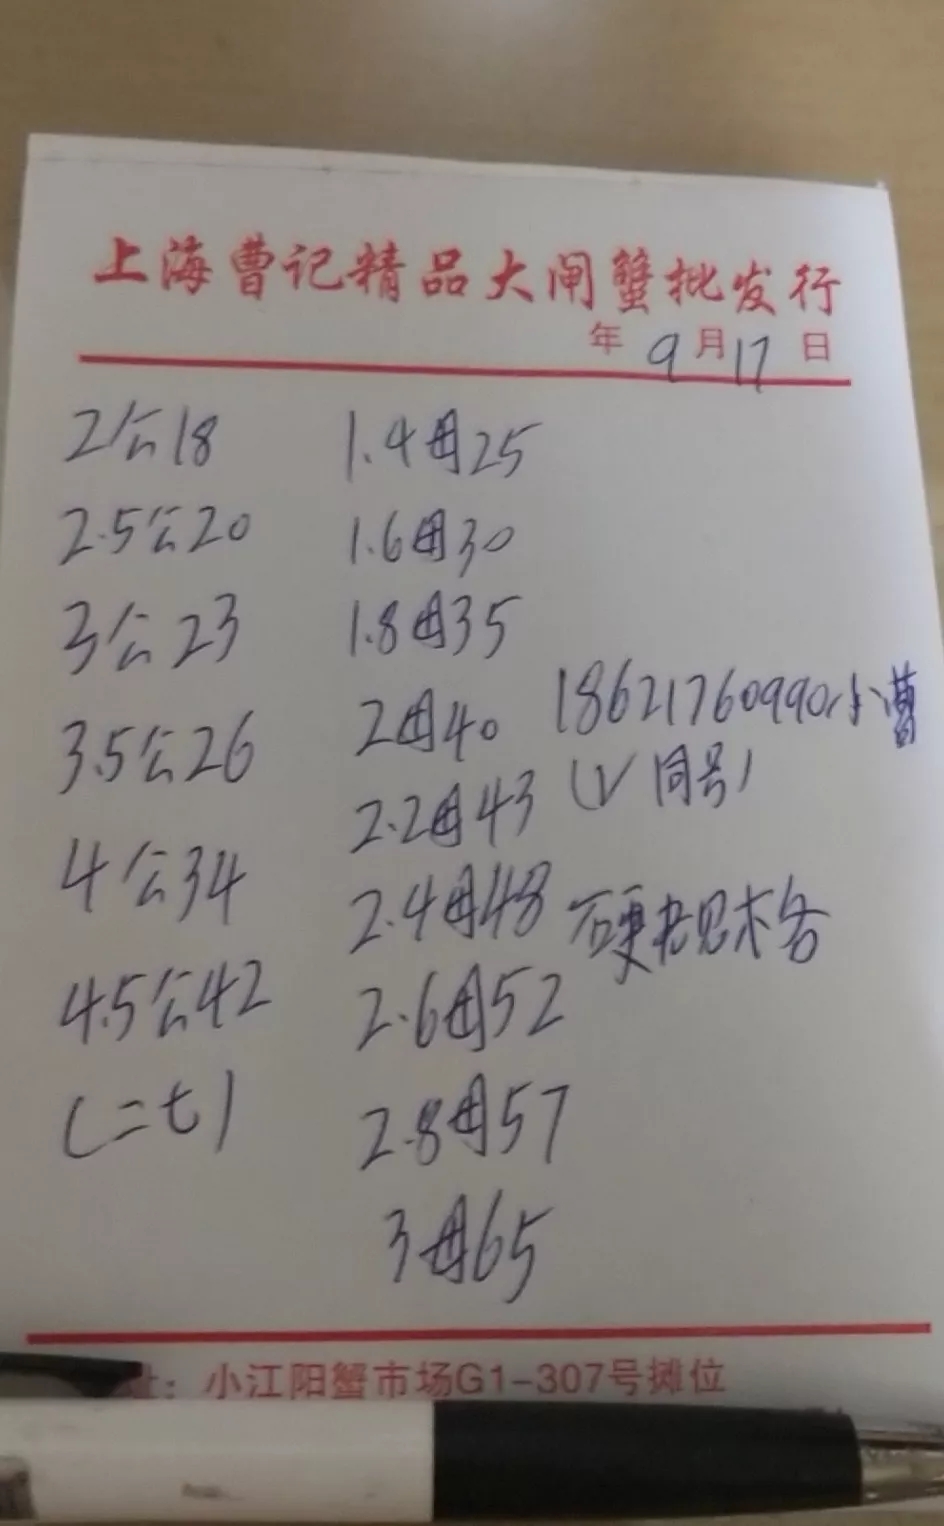 上海曹记精品大闸蟹批发行
年 9月17日
2公18 1.4母25
2.5公20 1.6母30
3公23 1.8母35
3.5公26 2母40 18621760990小曹
2.2母43 (V同号)
4公34 2.4母48 硬老规格
4.5公42 2.6母52
(二七) 2.8母57
3母65
址：小江阳蟹市场G1-307号摊位